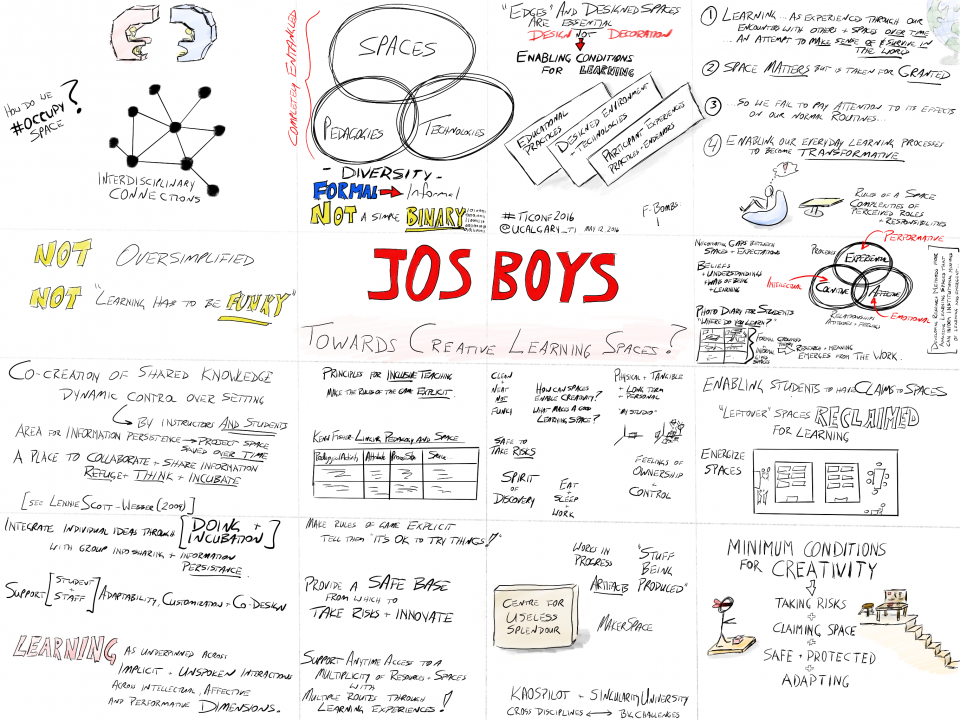 HOW DO WE
#OCCUPY
SPACE
?
INTERDISCIPLINARY
CONNECTIONS
COMPLETELY ENTANGLED
SPACES
PEDAGOGIES
TECHNOLOGIES
- DIVERSITY -
FORMAL → Informal
NOT A SIMPLE BINARY
"EDGES" AND DESIGNED SPACES
ARE ESSENTIAL
DESIGN NOT DECORATION
ENABLING CONDITIONS
FOR LEARNING
EDUCATIONAL
PRACTICES
DESIGNED ENVIRONMENT
+ TECHNOLOGIES
PARTICIPANT EXPERIENCES
PRACTICES + ENDEAVORS
#TICONF2016
@UCALGARY_TI MAY 12, 2016
F-BOMBS
① LEARNING ... AS EXPERIENCED THROUGH OUR
ENCOUNTERS WITH OTHERS + SPACES OVER TIME
... AN ATTEMPT TO MAKE SENSE OF & SURVIVE IN
THE WORLD
② SPACE MATTERS BUT IS TAKEN FOR GRANTED
③ ... SO WE FAIL TO PAY ATTENTION TO ITS EFFECTS
ON OUR NORMAL ROUTINES...
④ ENABLING OUR EVERYDAY LEARNING PROCESSES
TO BECOME TRANSFORMATIVE
RULES OF A SPACE
COMPLEXITIES OF
PERCEIVED ROLES
+ RESPONSIBILITIES
NOT OVERSIMPLIFIED
NOT "LEARNING HAS TO BE FUNKY"
JOS BOYS
TOWARDS CREATIVE LEARNING SPACES?
NEGOTIATING GAPS BETWEEN
SPACES + EXPECTATIONS
BELIEFS
+ UNDERSTANDINGS
+ WAYS OF BEING
+ LEARNING
PHOTO DIARY FOR STUDENTS
"WHERE DO YOU LEARN?"
RESEARCH + MEANING
EMERGES FROM THE WORK.
PERFORMATIVE
PROCESS
EXPERIENTIAL
INTELLECTUAL
COGNITIVE
AFFECTIVE
EMOTIONAL
RELATIONSHIPS
ATTITUDES + FEELINGS
DEVELOPING RESEARCH METHODS FOR
ANALYZING LEARNING SPACES THAT
CAN INFORM INSTITUTIONAL NOTIONS
OF LEARNING AND DEVELOPMENT...
CO-CREATION OF SHARED KNOWLEDGE
DYNAMIC CONTROL OVER SETTING
BY INSTRUCTORS AND STUDENTS
AREA FOR INFORMATION PERSISTENCE → PROJECT SPACE
SAVED OVER TIME
A PLACE TO COLLABORATE + SHARE INFORMATION
REFUGE + THINK + INCUBATE
[SEE LENNIE SCOTT-WEBBER (2009)]
PRINCIPLES FOR INCLUSIVE TEACHING
MAKE THE RULES OF THE GAME EXPLICIT
KENN FISHER LINKING PEDAGOGY AND SPACE
Pedagogical Activity Attribute Process Steps Space...
CLEAN
+
NEAT
NOT
FUNKY
HOW CAN SPACES
ENABLE CREATIVITY?
WHAT MAKES A GOOD
LEARNING SPACE?
PHYSICAL + TANGIBLE
+ LONG TERM
+ PERSONAL
"MY STUDIO"
SAFE TO
TAKE RISKS
SPIRIT
OF
DISCOVERY
EAT
+
SLEEP
+
WORK
FEELINGS OF
OWNERSHIP
+
CONTROL
ENABLING STUDENTS TO HAVE CLAIMS TO SPACES
"LEFTOVER" SPACES RECLAIMED
FOR LEARNING
ENERGIZE
SPACES
INTEGRATE INDIVIDUAL IDEAS THROUGH [DOING +
INCUBATION]
WITH GROUP INFO SHARING + INFORMATION
PERSISTENCE.
SUPPORT [STUDENT
+
STAFF] ADAPTABILITY, CUSTOMIZATION + CO-DESIGN
LEARNING AS UNDERPINNED ACROSS
IMPLICIT + UNSPOKEN INTERACTIONS
ACROSS INTELLECTUAL, AFFECTIVE
AND PERFORMATIVE DIMENSIONS.
MAKE RULES OF GAME EXPLICIT
TELL THEM "IT'S OK TO TRY THINGS!"
PROVIDE A SAFE BASE
FROM WHICH TO
TAKE RISKS + INNOVATE
SUPPORT ANYTIME ACCESS TO A
MULTIPLICITY OF RESOURCES + SPACES
WITH
MULTIPLE ROUTES THROUGH
LEARNING EXPERIENCES!
WORKS IN
PROGRESS
ARTIFACTS
"STUFF
BEING
PRODUCED"
CENTRE FOR
USELESS
SPLENDOUR
MAKERSPACE
KAOSPILOT + SINGULARITY UNIVERSITY
CROSS DISCIPLINES ↔ BIG CHALLENGES
MINIMUM CONDITIONS
FOR CREATIVITY
TAKING RISKS
+
CLAIMING SPACE
+
SAFE + PROTECTED
+
ADAPTING